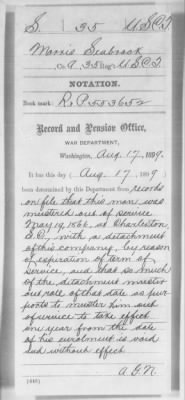 S. 35 U.S.C.T.
Morris Seabrook
Co. A, 35 Reg't U.S.C.T.
NOTATION.
Book mark: R&P 553652
Record and Pension Office,
WAR DEPARTMENT,
Washington, Aug. 17, 1899.
It has this day (Aug. 17, 1899)
been determined by this Department from records
on file that this man was
mustered out of service
May 14, 1866, at Charleston,
S.C., with a detachment
of this company, by reason
of expiration of term of
service, and that so much
of the detachment muster
out roll of that date as pur-
ports to muster him out
of service to take effect
one year from the date
of his enrolment is void
and without effect
A.G.N.
(448)